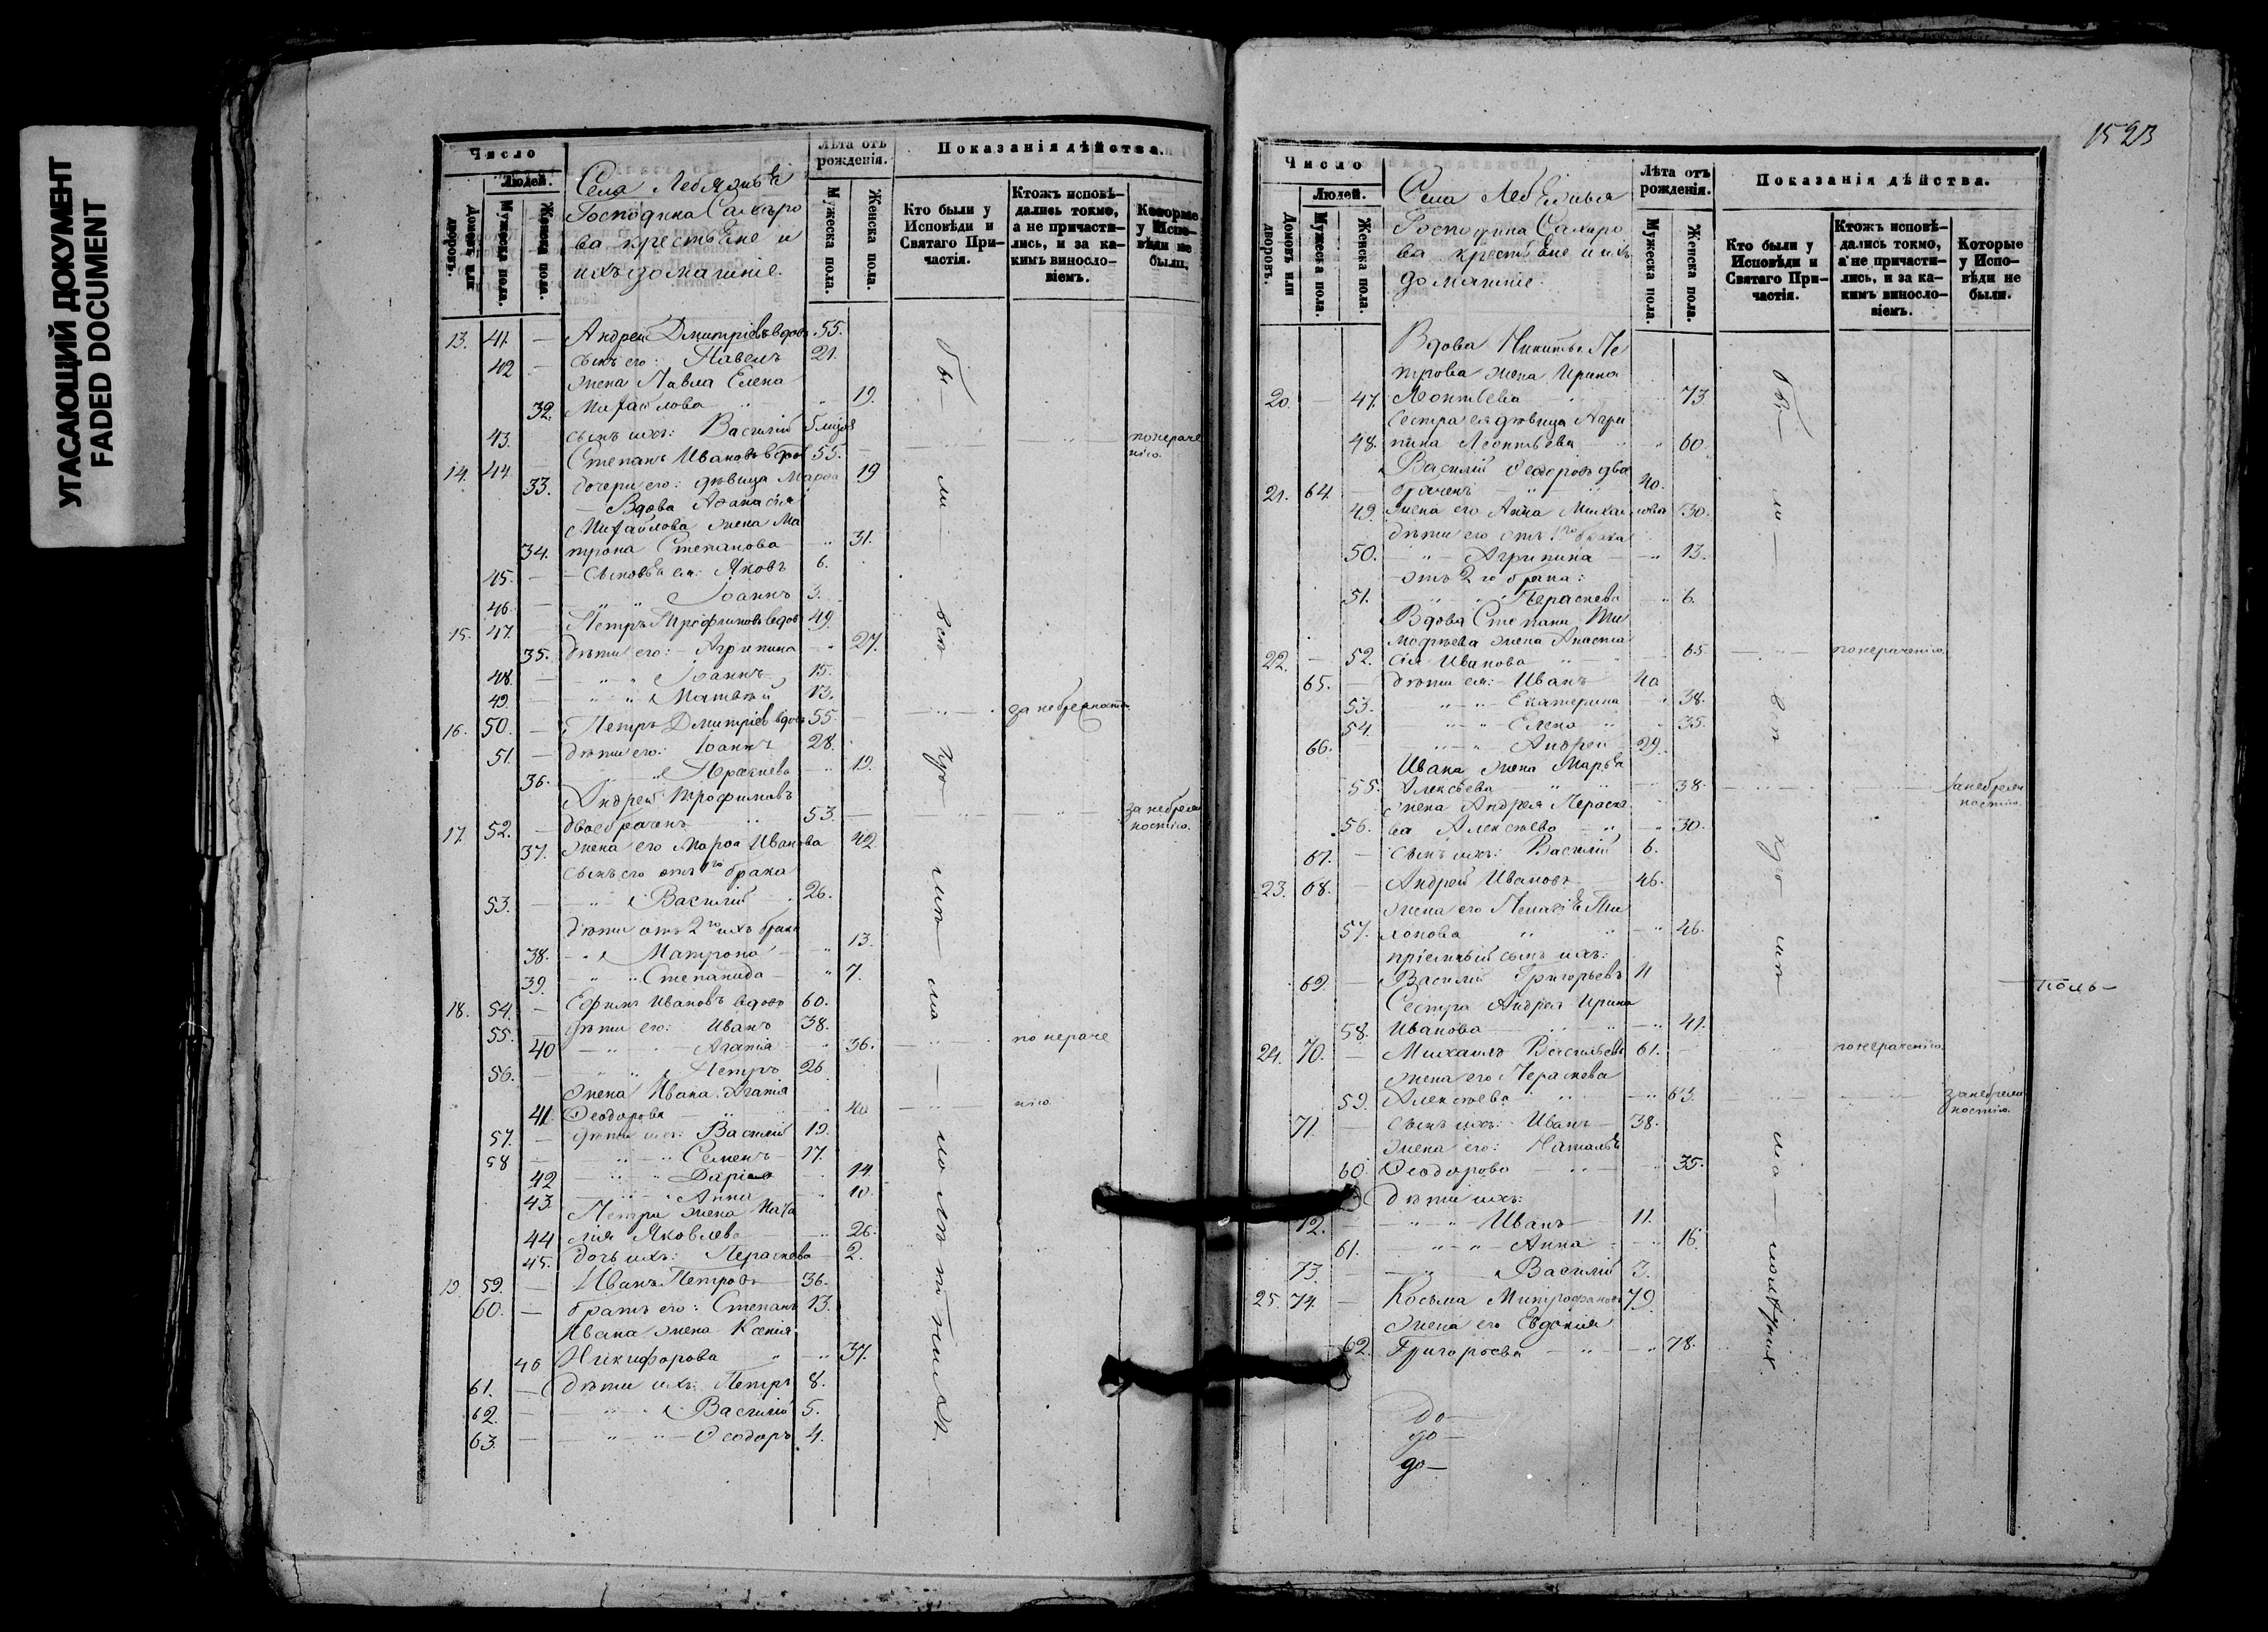 УГАСАЮЩИЙ ДОКУМЕНТ
FADED DOCUMENT
Число
Людей.
Домовъ или дворовъ.
Мужеска пола.
Женска пола.
Села
Господина Сахаро
ва крестьяне и
ихъ домашніе.
Лѣта отъ рожденія.
Мужеска пола.
Женска пола.
Показанія дѣйства.
Кто были у Исповѣди и Святаго При-частія.
Ктожъ исповѣ-дались токмо, а не причасти-лись, и за ка-кимъ винослo-віемъ.
Которые у Испо-вѣди не были.
13. 41. — Андрей Дмитріевъ вдовъ 55.
42 — сынъ его: Павелъ 21.
жена Павла Елена
32. Михайлова 19.
43. сынъ ихъ: Василій
14. 44. — Степанъ Ивановъ вдов 55. по нераче нію.
33. дочери его: дѣвица Марѳа 19
Вдова Аѳанасья
Михайлова жена Ма
34. трона Степанова 31.
45. — Сыновья ея: Яковъ 6.
46. — Іоаннъ 3.
15. 47. — Петръ Трофимовъ вдовъ 49.
35. дѣти его: Агрипина 27.
48. — Іоаннъ 15.
49. — Матвѣй 13.
16. 50. — Петръ Дмитріев вдовъ 55. за небрежность
51. — дѣти его: Іоаннъ 28.
36. Параскева 19.
Андрей Трофимовъ
17. 52. — двоебраченъ 53. за небреж ностію.
37. жена его Марѳа Иванова 42.
сынъ его отъ 1го брака
53. — Василій 26.
дѣти отъ 2го ихъ брака
38. Матрона 13.
39. Степанида 7.
18. 54. — Ефимъ Ивановъ вдовъ 60.
55. — дѣти его: Иванъ 38.
40 Агапія 36. по нераче
56. — Петръ 26
жена Ивана Агапія
41. Ѳеодорова 40 нію
57. — дѣти ихъ: Василій 19.
58 — Семенъ 17.
42 Дарія 14
43. Анна 10.
Петра жена Ната
44 лія Яковлева 26.
45. дочь ихъ: Параскева 2.
19. 59. — Иванъ Петровъ 36.
60. — братъ его: Степанъ 13.
Ивана жена Ксенія
46 Никифорова 37.
61. — дѣти ихъ: Петръ 8.
62. — Василій 5.
63. — Ѳеодоръ 4.
бы — ли — всѣ
1523
Число
Людей.
Домовъ или дворовъ.
Мужеска пола.
Женска пола.
Села
Господина Сахаро
ва крестьяне и ихъ
домашніе.
Лѣта отъ рожденія.
Мужеска пола.
Женска пола.
Показанія дѣйства.
Кто были у Исповѣди и Святаго При-частія.
Ктожъ исповѣ-дались токмо, а не причасти-лись, и за ка-кимъ винослo-віемъ.
Которые у Испо-вѣди не были.
Вдова Никиты Пе
трова жена Ирина
20. — 47. Леонтьева 73.
сестра ея дѣвица Агри
48. пина Леонтьева 60.
Василій Ѳеодоровъ дво
21. 64. — браченъ 40.
49. жена его Анна Михайлова 30.
дѣти его отъ 1го брака
50. Агрипина 13.
отъ 2го брака:
51. Параскева 6.
Вдова Степана Ти
мофѣева жена Анаста
22. — 52. сія Иванова 65. по нераченію.
65. — дѣти ея: Иванъ 40
53. Екатерина 38.
54. Елена 35.
66. — Андрей 29.
Ивана жена Марья
55. Алексѣева 38. за небреж ностію.
жена Андрея Параске
56. ва Алексѣева 30.
67. — сынъ ихъ: Василій 6.
23. 68. — Андрей Ивановъ 46.
жена его
57. 46.
пріемный сынъ ихъ:
69. — Василій Григорьевъ 11
Сестра Андрея Ирина
58. Иванова 41.
24. 70. — Михаилъ Васильевъ 61. по нераченію.
жена его Параскева
59. Алексѣева 63. за небреж ностію.
71. — сынъ ихъ: Иванъ 38.
жена его: Наталья
60. Ѳеодорова 35.
дѣти ихъ:
72. — Иванъ 11.
61. Анна 16.
73. — Василій 3.
25. 74. — Косьма Митрофановъ 79.
жена его Евдокія
62. Григорьева 78.
до —
до —
до —
бы — ли — всѣ